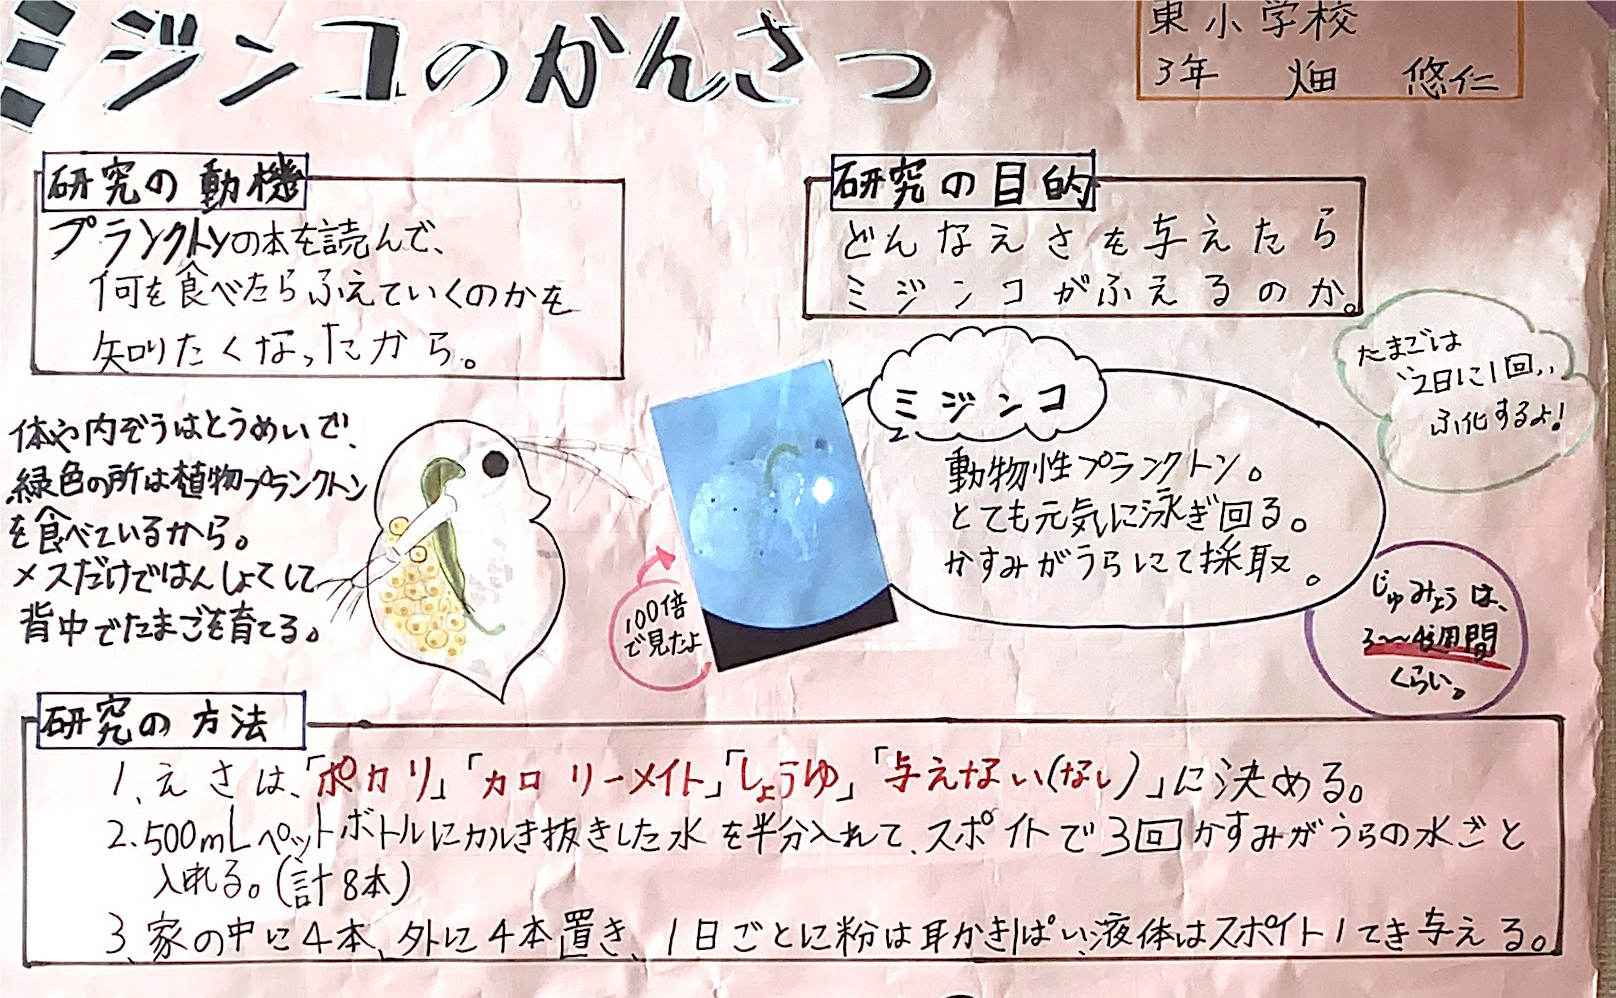 ミジンコのかんさつ
東小学校
3年 畑 悠仁
研究の動機
プランクトンの本を読んで、
何を食べたらふえていくのかを
知りたくなったから。
研究の目的
どんなえさを与えたら
ミジンコがふえるのか。
たまごは
"2日に1回"
ふ化するよ!
体や内ぞうはとうめいで、
緑色の所は植物プランクトン
を食べているから。
メスだけではんしょくして
背中でたまごを育てる。
100倍
で見たよ
ミジンコ
動物性プランクトン。
とても元気に泳ぎ回る。
かすみがうらにて採取。
じゅみょうは、
3〜4週間
くらい。
研究の方法
1、えさは、「ポカリ」「カロリーメイト」「しょうゆ」「与えない(なし)」に決める。
2.500mLペットボトルにカルキ抜きした水を半分入れて、スポイトで3回かすみがうらの水ごと
入れる。(計8本)
3、家の中に4本、外に4本置き、1日ごとに粉は耳かき1ぱい、液体はスポイト1てき与える。